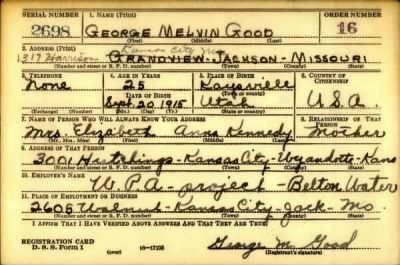 SERIAL NUMBER 1. NAME (Print) ORDER NUMBER
2698 GEORGE MELVIN GOOD 16
(First) (Middle) (Last)
2. ADDRESS (Print) Kansas City Mo
1317 Harrison GRANDVIEW - JACKSON - MISSOURI
(Number and street or R. F. D. number) (Town) (County) (State)
3. TELEPHONE 4. AGE IN YEARS 5. PLACE OF BIRTH 6. COUNTRY OF CITIZENSHIP
None 25 Kaysville
DATE OF BIRTH (Town or county)
Sept. 20, 1915 Utah U.S.A.
(Exchange) (Number) (Mo.) (Day) (Yr.) (State or country)
7. NAME OF PERSON WHO WILL ALWAYS KNOW YOUR ADDRESS 8. RELATIONSHIP OF THAT PERSON
Mrs. Elizabeth Anna Kennedy Mother
(Mr., Mrs., Miss) (First) (Middle) (Last)
9. ADDRESS OF THAT PERSON
3001 Hutchings - Kansas City - Wyandotte - Kans
(Number and street or R. F. D. number) (Town) (County) (State)
10. EMPLOYER'S NAME
W.P.A. - project - Belton Water
11. PLACE OF EMPLOYMENT OR BUSINESS
2605 Walnut - Kansas City - Jack - Mo.
(Number and street or R. F. D. number) (Town) (County) (State)
I AFFIRM THAT I HAVE VERIFIED ABOVE ANSWERS AND THAT THEY ARE TRUE.
REGISTRATION CARD George M. Good
D. S. S. Form 1 (over) (Registrant's signature)